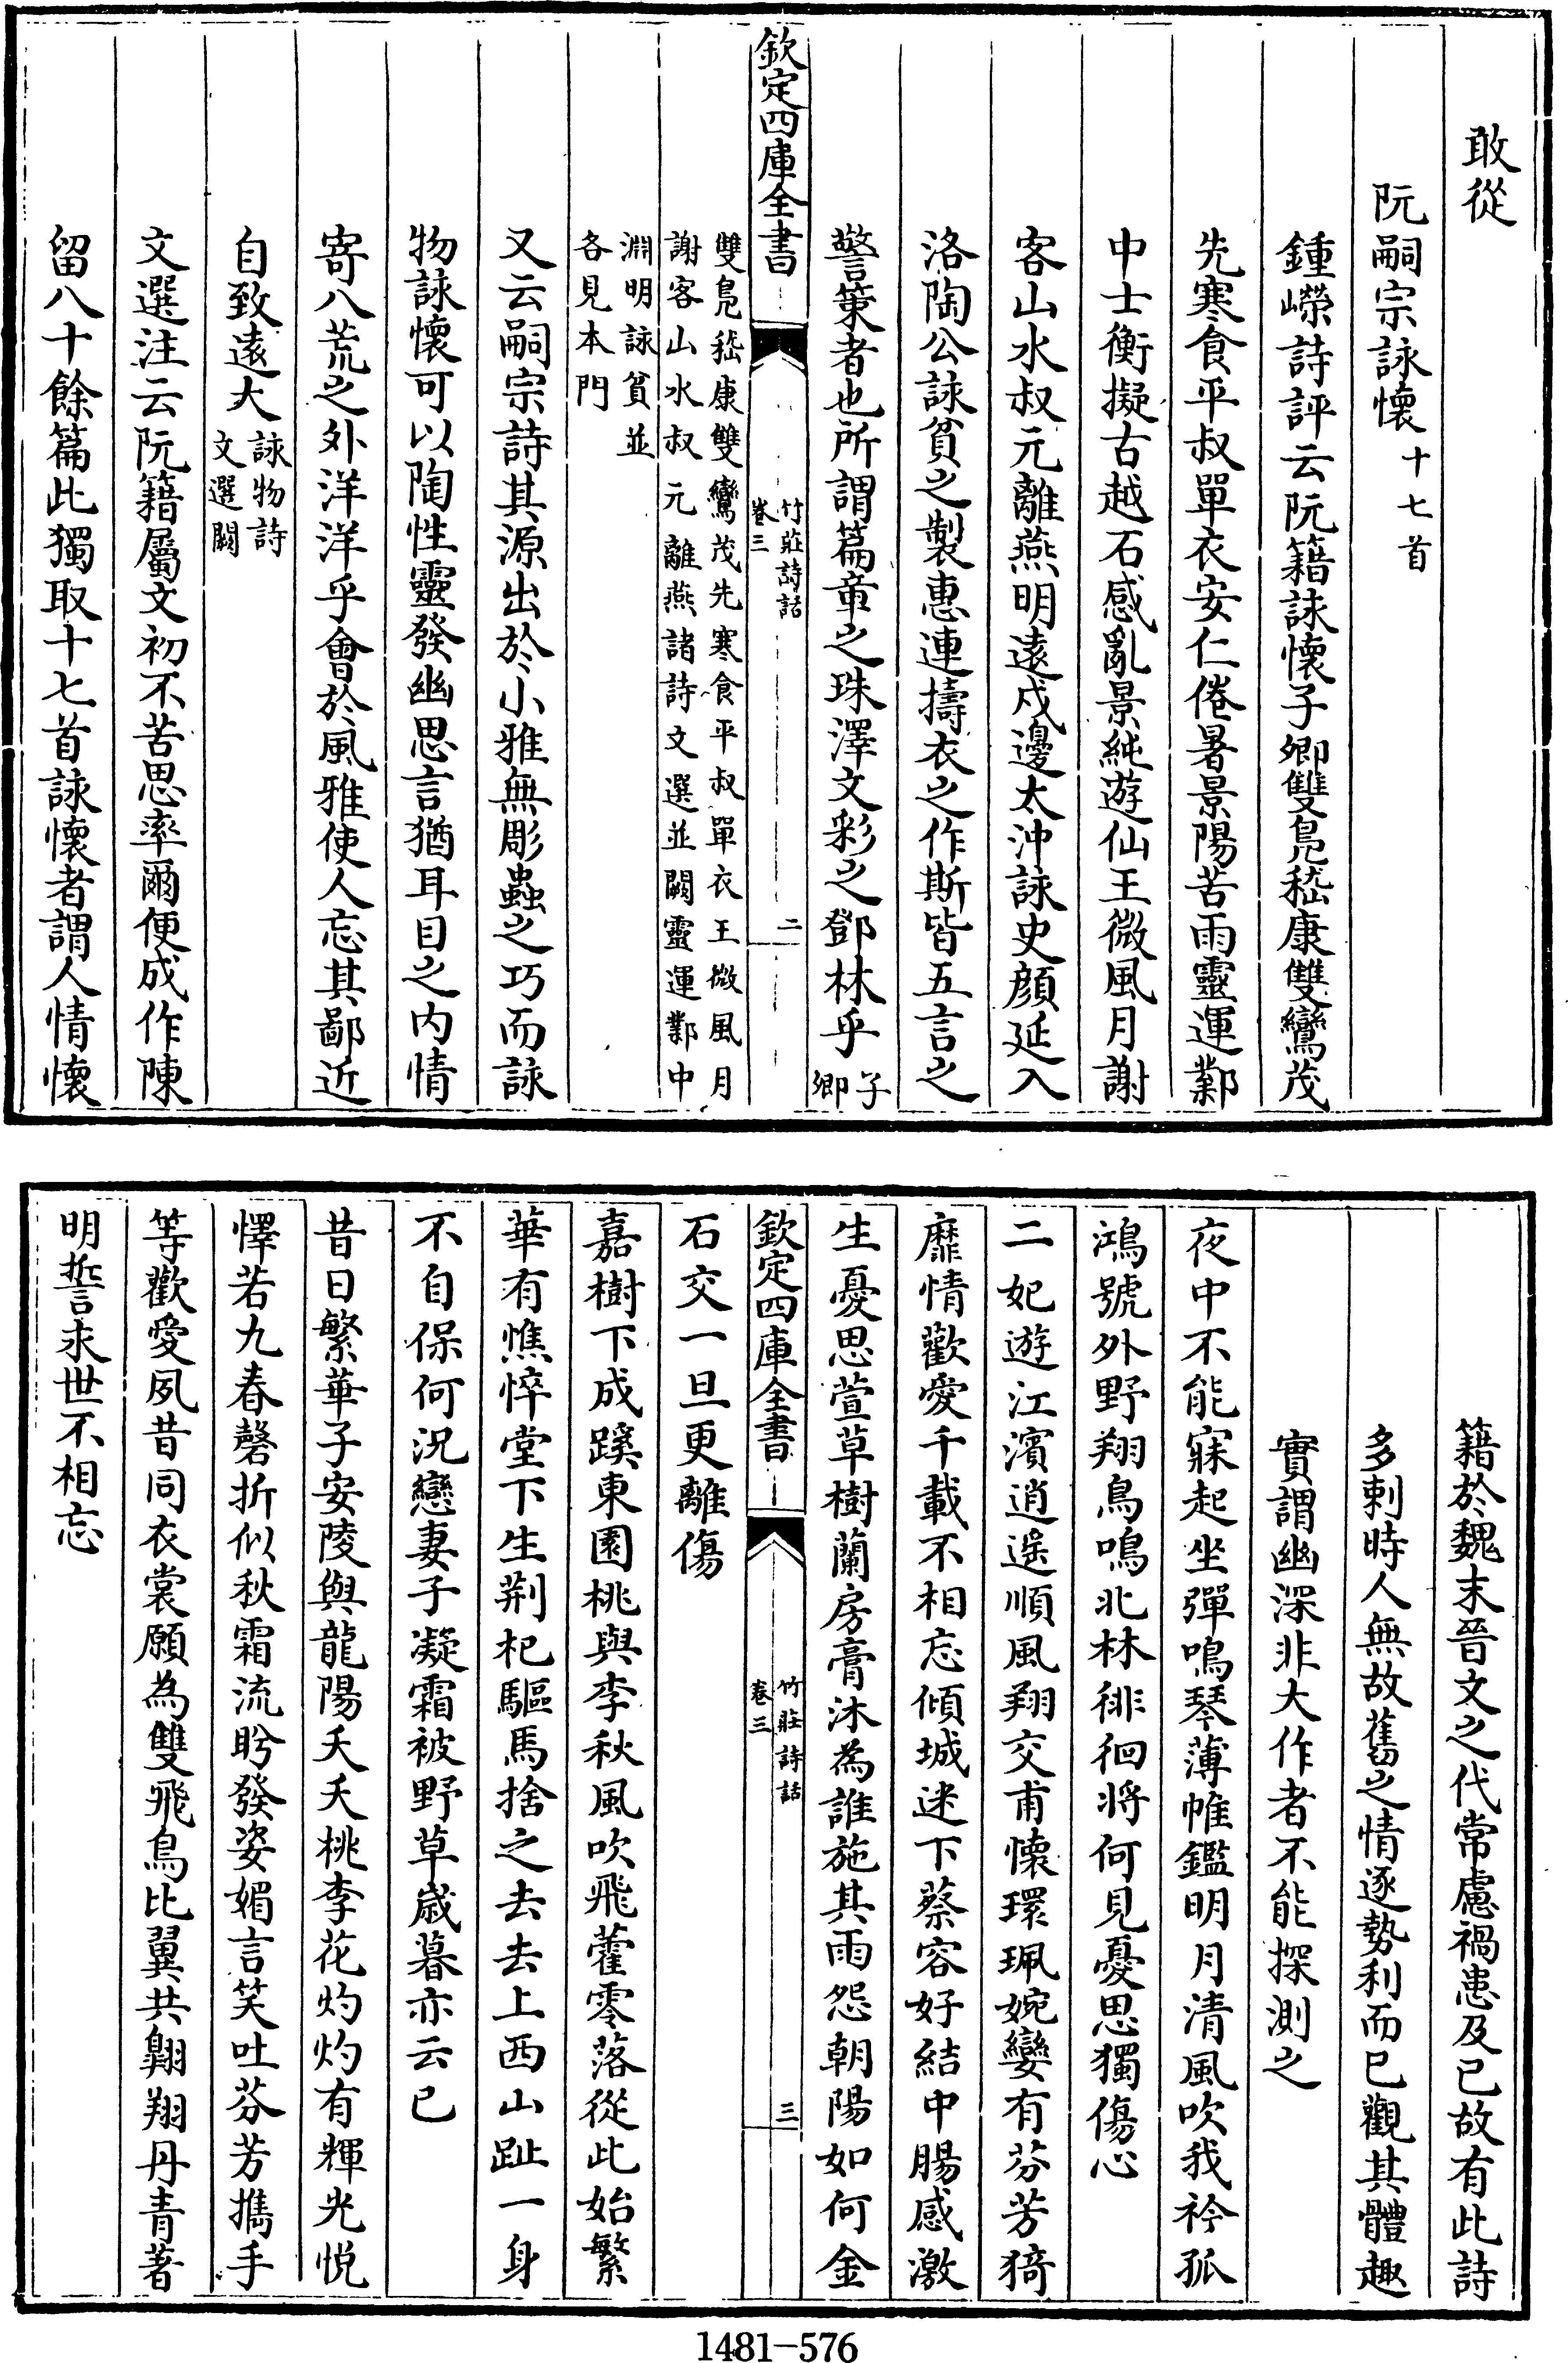 敢從
阮嗣宗詠懷十七首
鍾嶸詩評云阮籍詠懷子卿雙鳧嵇康雙鸞茂
先寒食平叔單衣安仁倦暑景陽苦雨靈運鄴
中士衡擬古越石感亂景純遊仙王微風月謝
客山水叔元離燕明遠戍邊太沖詠史顔延入
洛陶公詠貧之製惠連擣衣之作斯皆五言之
警策者也所謂篇章之珠澤文彩之鄧林乎子
卿
欽定四庫全書
竹莊詩話
卷三
二
雙鳧嵇康雙鸞茂先寒食平叔單衣王微風月
謝客山水叔元離燕諸詩文選並闕靈運鄴中
淵明詠貧並
各見本門
又云嗣宗詩其源出於小雅無彫蟲之巧而詠
物詠懷可以陶性靈發幽思言猶耳目之内情
寄八荒之外洋洋乎會於風雅使人忘其鄙近
自致遠大詠物詩
文選闕
文選注云阮籍屬文初不苦思率爾便成作陳
留八十餘篇此獨取十七首詠懷者謂人情懷
籍於魏末晉文之代常慮禍患及已故有此詩
多刺時人無故舊之情逐勢利而已觀其體趣
實謂幽深非大作者不能探測之
夜中不能寐起坐彈鳴琴薄帷鑑明月清風吹我衿孤
鴻號外野翔鳥鳴北林徘徊將何見憂思獨傷心
二妃遊江濱逍遥順風翔交甫懷環珮婉孌有芬芳猗
靡情歡愛千載不相忘傾城迷下蔡容好結中腸感激
生憂思萱草樹蘭房膏沐為誰施其雨怨朝陽如何金
欽定四庫全書
竹莊詩話
卷三
三
石交一旦更離傷
嘉樹下成蹊東園桃與李秋風吹飛藿零落從此始繁
華有憔悴堂下生荆杞驅馬捨之去去上西山趾一身
不自保何況戀妻子凝霜被野草歳暮亦云已
昔日繁華子安陵與龍陽夭夭桃李花灼灼有輝光悦
懌若九春磬折似秋霜流盻發姿媚言笑吐芬芳攜手
等歡愛夙昔同衣裳願為雙飛鳥比翼共翺翔丹青著
明誓永世不相忘
1481-576